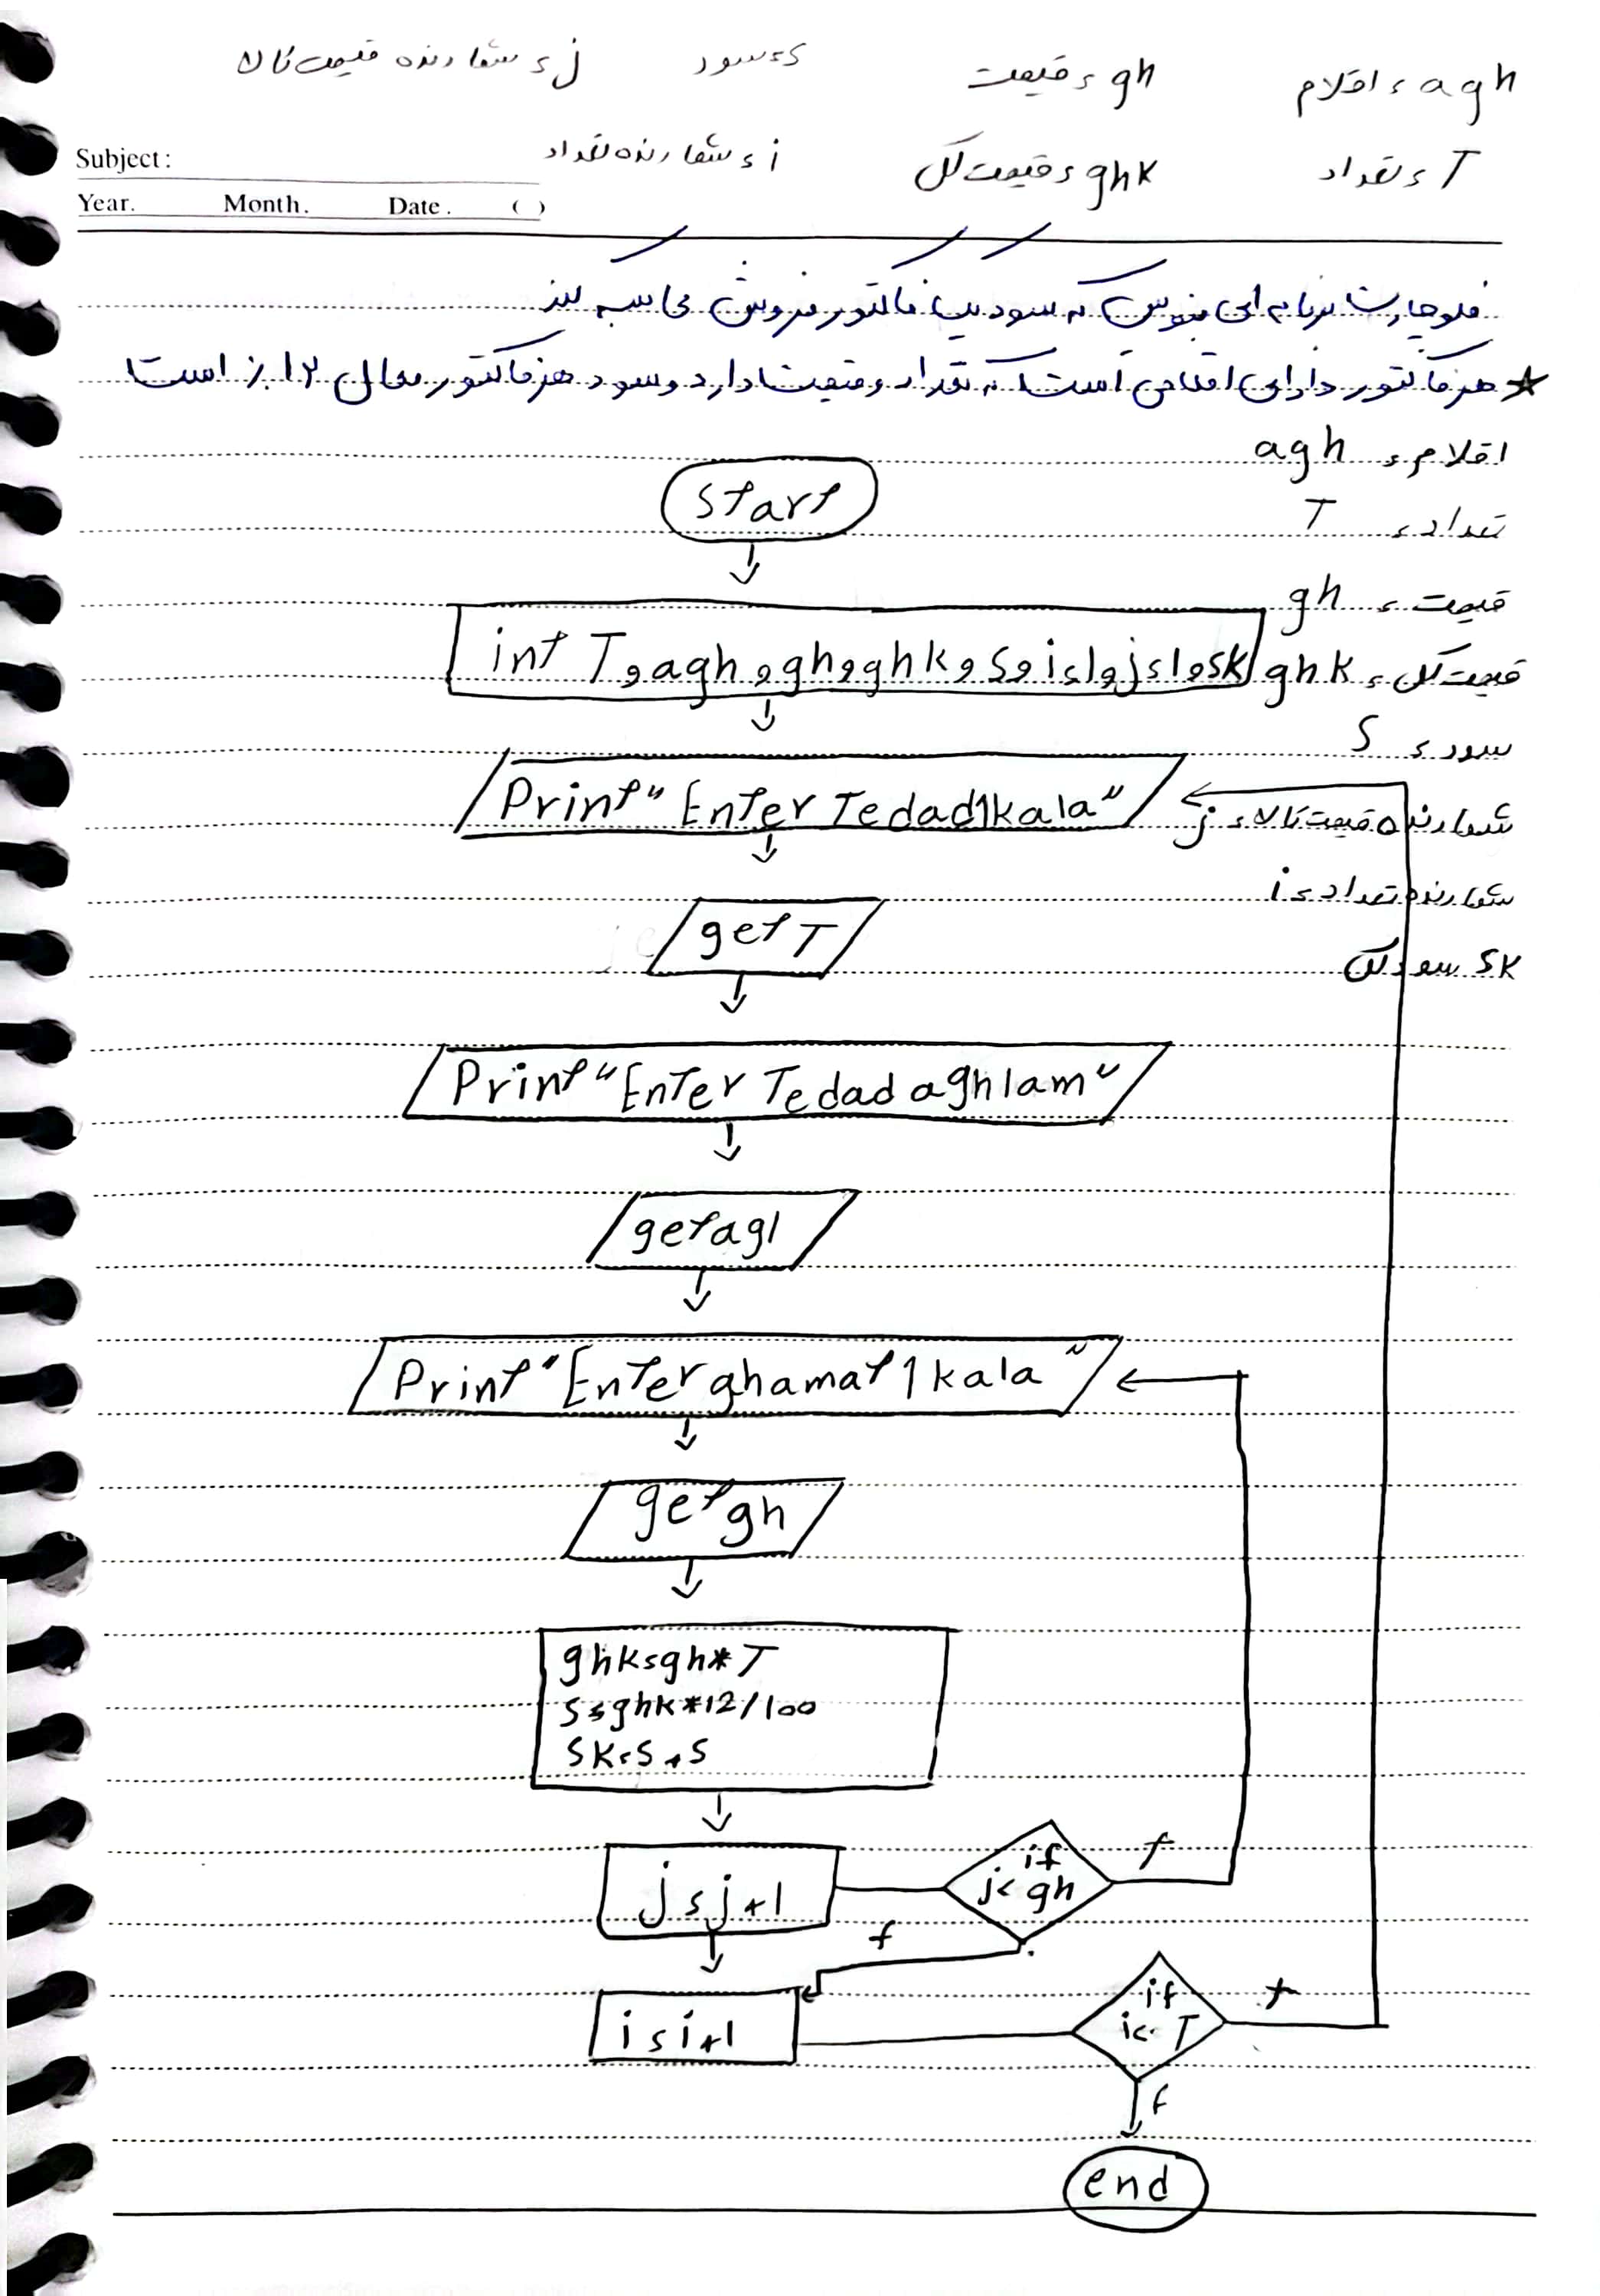 agh = اقلام gh = قیمت s = سود j = شمارنده قیمت کالا
T = تعداد ghk = قیمت کل i = شمارنده تعداد
Subject:
Year. Month. Date. ( )
فلوچارت برنامه ای بنویس که سود یک فاکتور فروش محاسبه کند
★ هر فاکتور دارای اقلامی است که تعداد و قیمت دارد و سود هر فاکتور معادل ۱۲٪ است
اقلام = agh
تعداد = T
قیمت = gh
قیمت کل = ghk
سود = S
شمارنده قیمت کالا = j
شمارنده تعداد = i
sk سود کل
start
int T,agh,gh,ghk,s,i=1,j=1,sk
Print "Enter Tedad 1 kala"
get T
Print "Enter Tedad aghlam"
get agl
Print "Enter ghamat 1 kala"
get gh
ghk=gh*T
s=ghk*12/100
sk=s+s
j=j+1
if
j< gh
t
f
i=i+1
if
i<= T
t
f
end